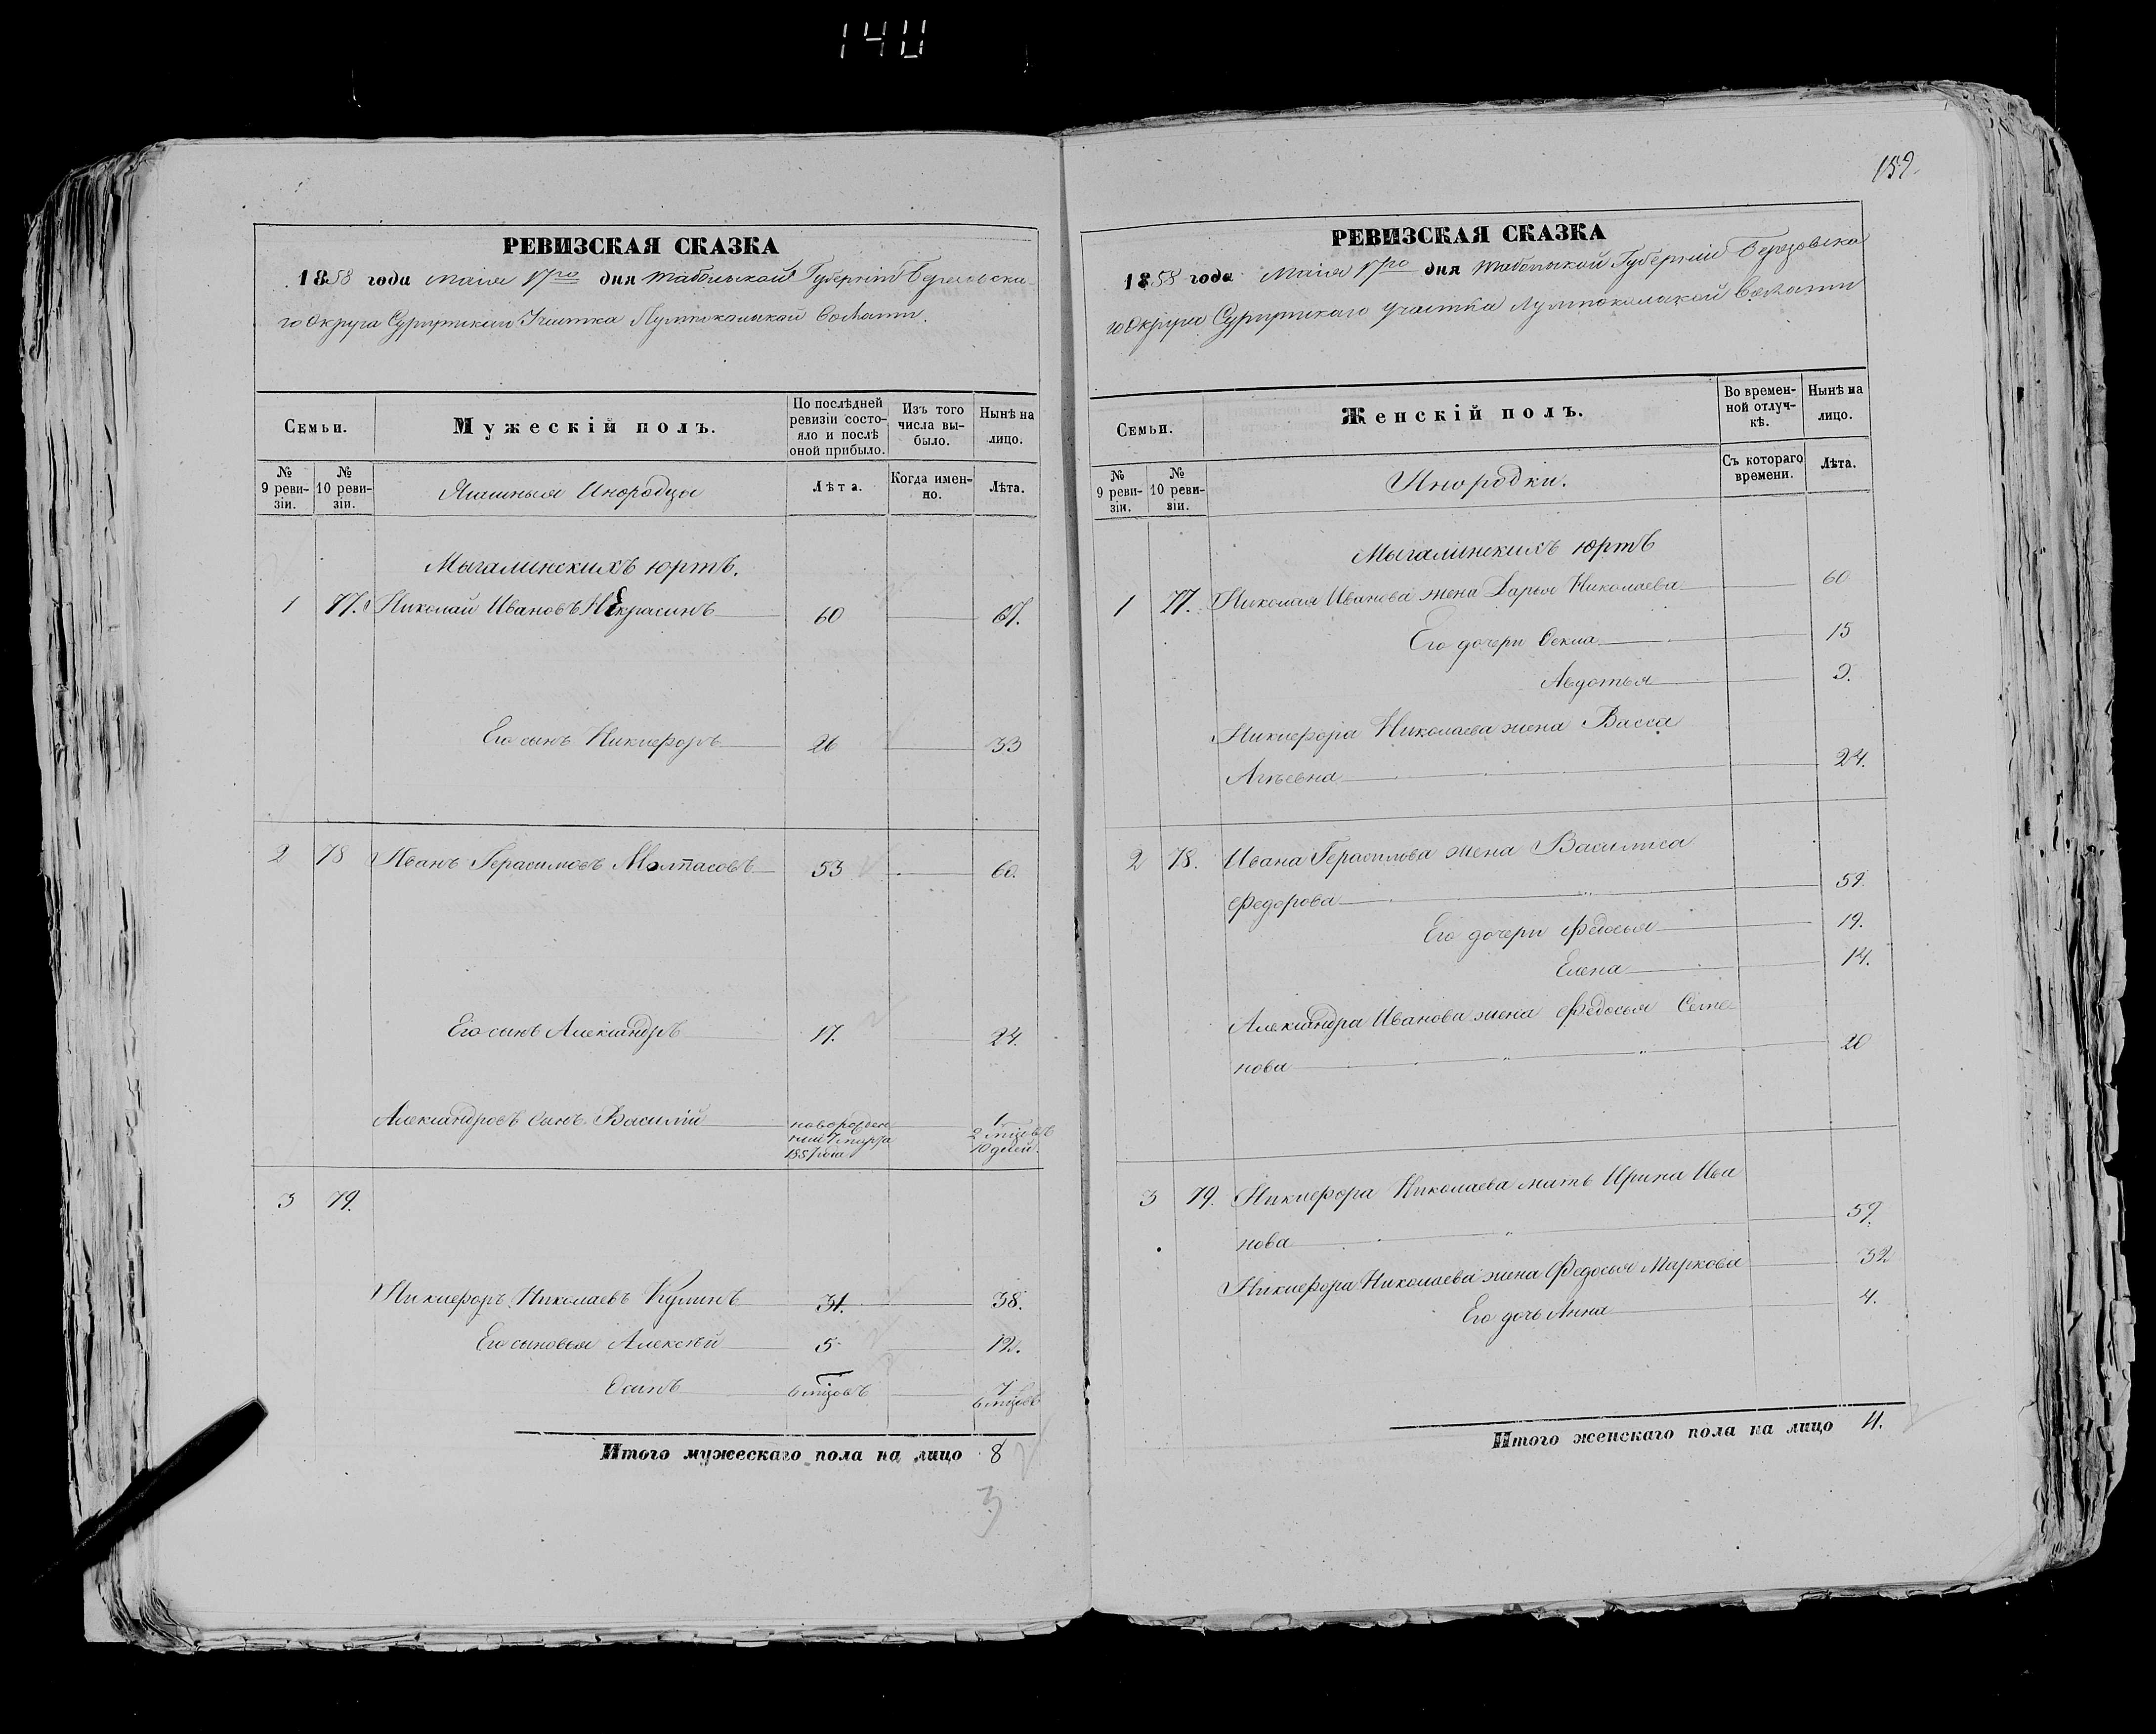 140
159.
РЕВИЗСКАЯ СКАЗКА
1858 года маия 17го дня Тобольской Губернии Березовска-
го Округа Сургутскаго Участка Лумпокольской Волости.
Семьи.
Мужескій полъ.
По послѣдней ревизіи состо-
яло и послѣ
оной прибыло.
Изъ того
числа вы-
было.
Нынѣ на
лицо.
№
9 реви-
зіи.
№
10 реви-
зіи.
Ясашныя Инородцы
Лѣта.
Когда имен-
но.
Лѣта.
Мыгалинскихъ юртъ.
1 77. Николай Ивановъ Некрасинъ 60 67.
Его сынъ Никиѳоръ 26 33
2 78 Иванъ Герасимовъ Молтасовъ 53 60.
Его сынъ Александръ 17. 24.
Александровъ сынъ Василій
новорожден
1857 года
1
2 мѣсяцовъ
10 дней.
3 79.
Никифоръ Николаевъ Кулинъ 31. 38.
Его сыновья Алексѣй 5 12.
Осипъ 6 мѣсцовъ 7 6 мѣсцовъ
Итого мужескаго пола на лицо 8
3
РЕВИЗСКАЯ СКАЗКА
1858 года Маия 17го дня Тобольской Губерніи Березовска
го Округа Сургутскаго участка Лумпокольской Волости
Семьи.
Женскій полъ.
Во времен-
ной отлуч-
кѣ.
Нынѣ на
лицо.
№
9 реви-
зіи.
№
10 реви-
зіи.
Инородки.
Съ котораго
времени.
Лѣта.
Мыгалинскихъ юртъ
1 77. Николая Иванова жена Дарья Николаева 60
Его дочери 15
Авдотья 9.
Никифора Николаева жена Васса
24.
2 78. Ивана Герасимова жена Василиса
Федорова 59.
Его дочери Федосья 19.
Елена 14.
Александра Иванова жена Федосья Семе-
нова 20
3 79. Никифора Николаева мать Ирина Ива
нова 59.
Никифора Николаева жена Федосья Маркова 32
Его дочь Анна 4.
Итого женскаго пола на лицо 11.